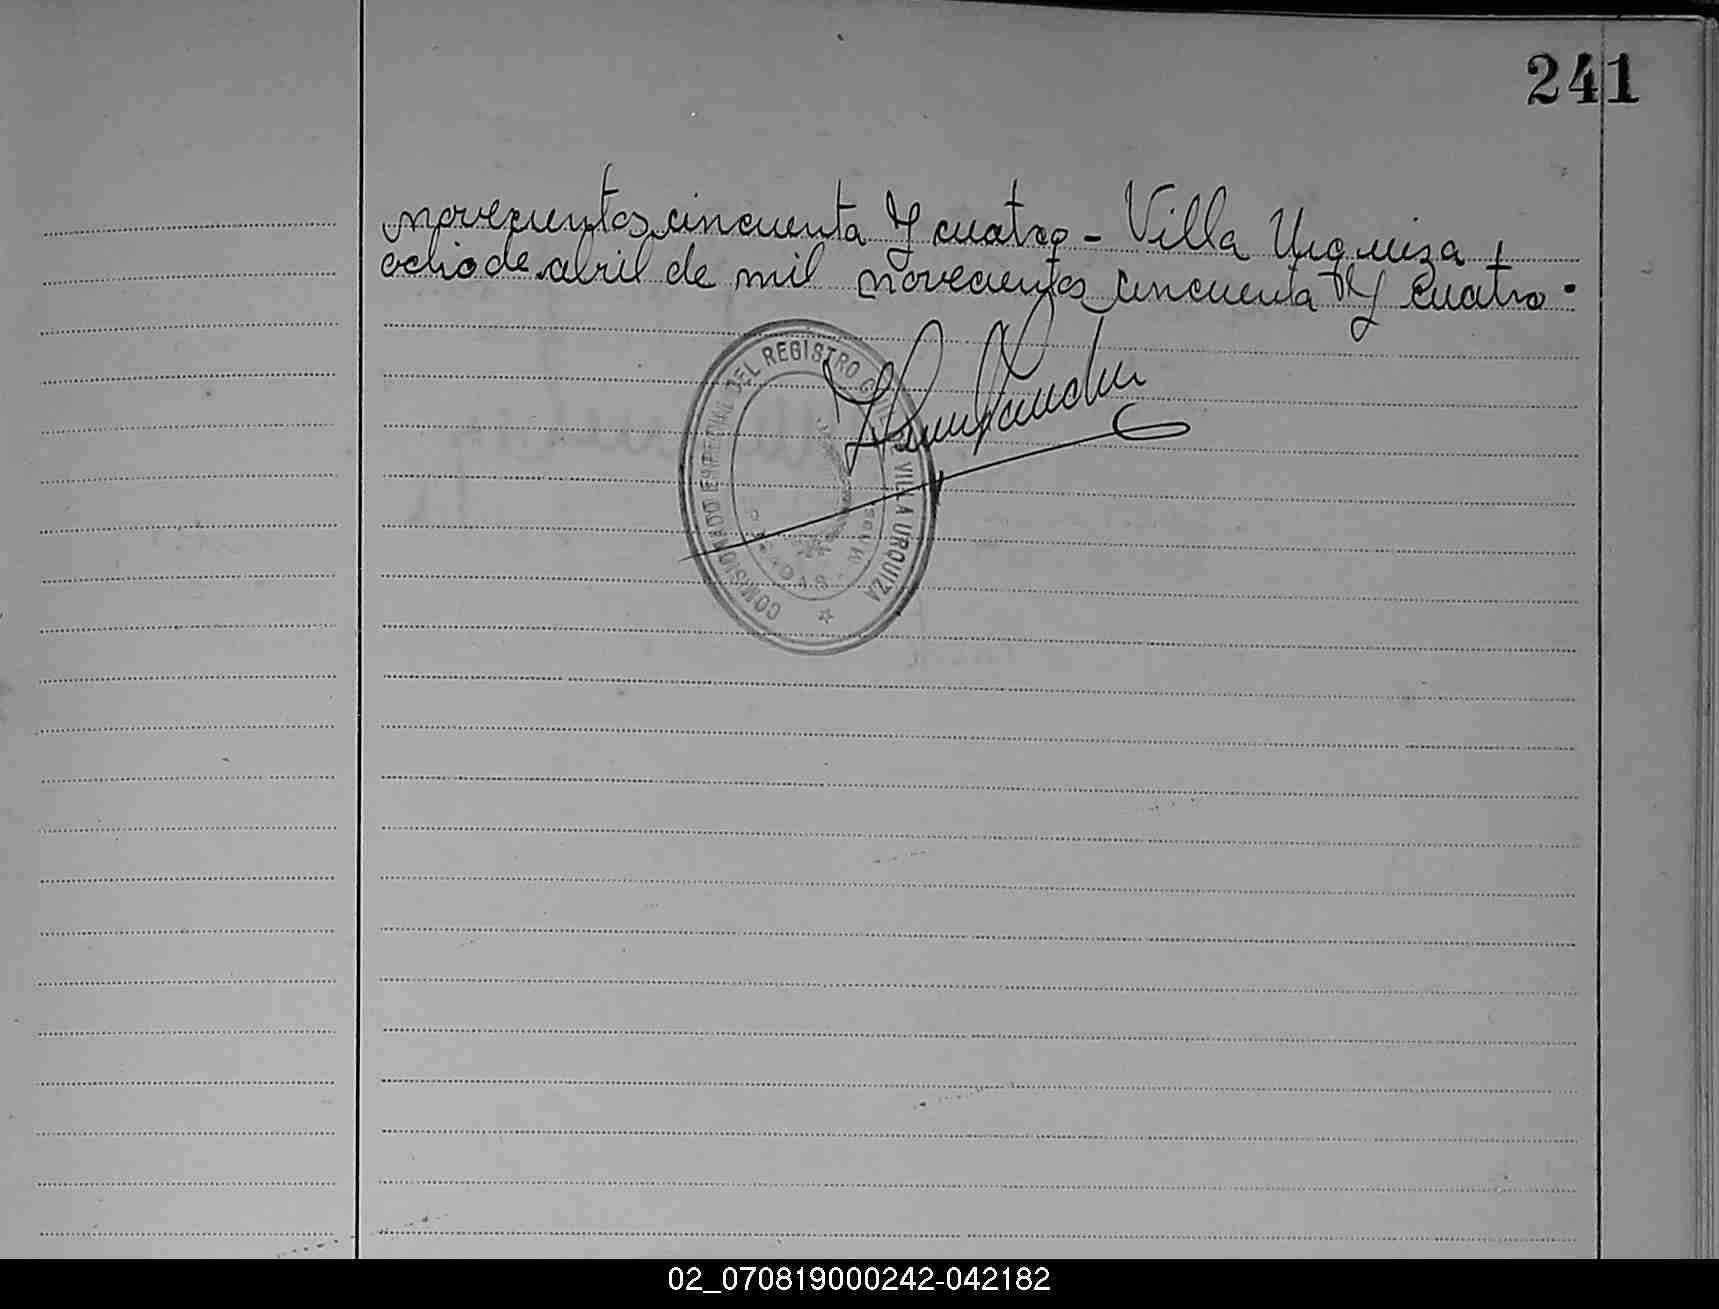 241
novecientos cincuenta y cuatro - Villa Urquiza,
ocho de abril de mil novecientos cincuenta y cuatro.
COMISIONADO ESPECIAL DEL REGISTRO CIVIL
VILLA URQUIZA
POSADAS - MISIONES
02_070819000242-042182